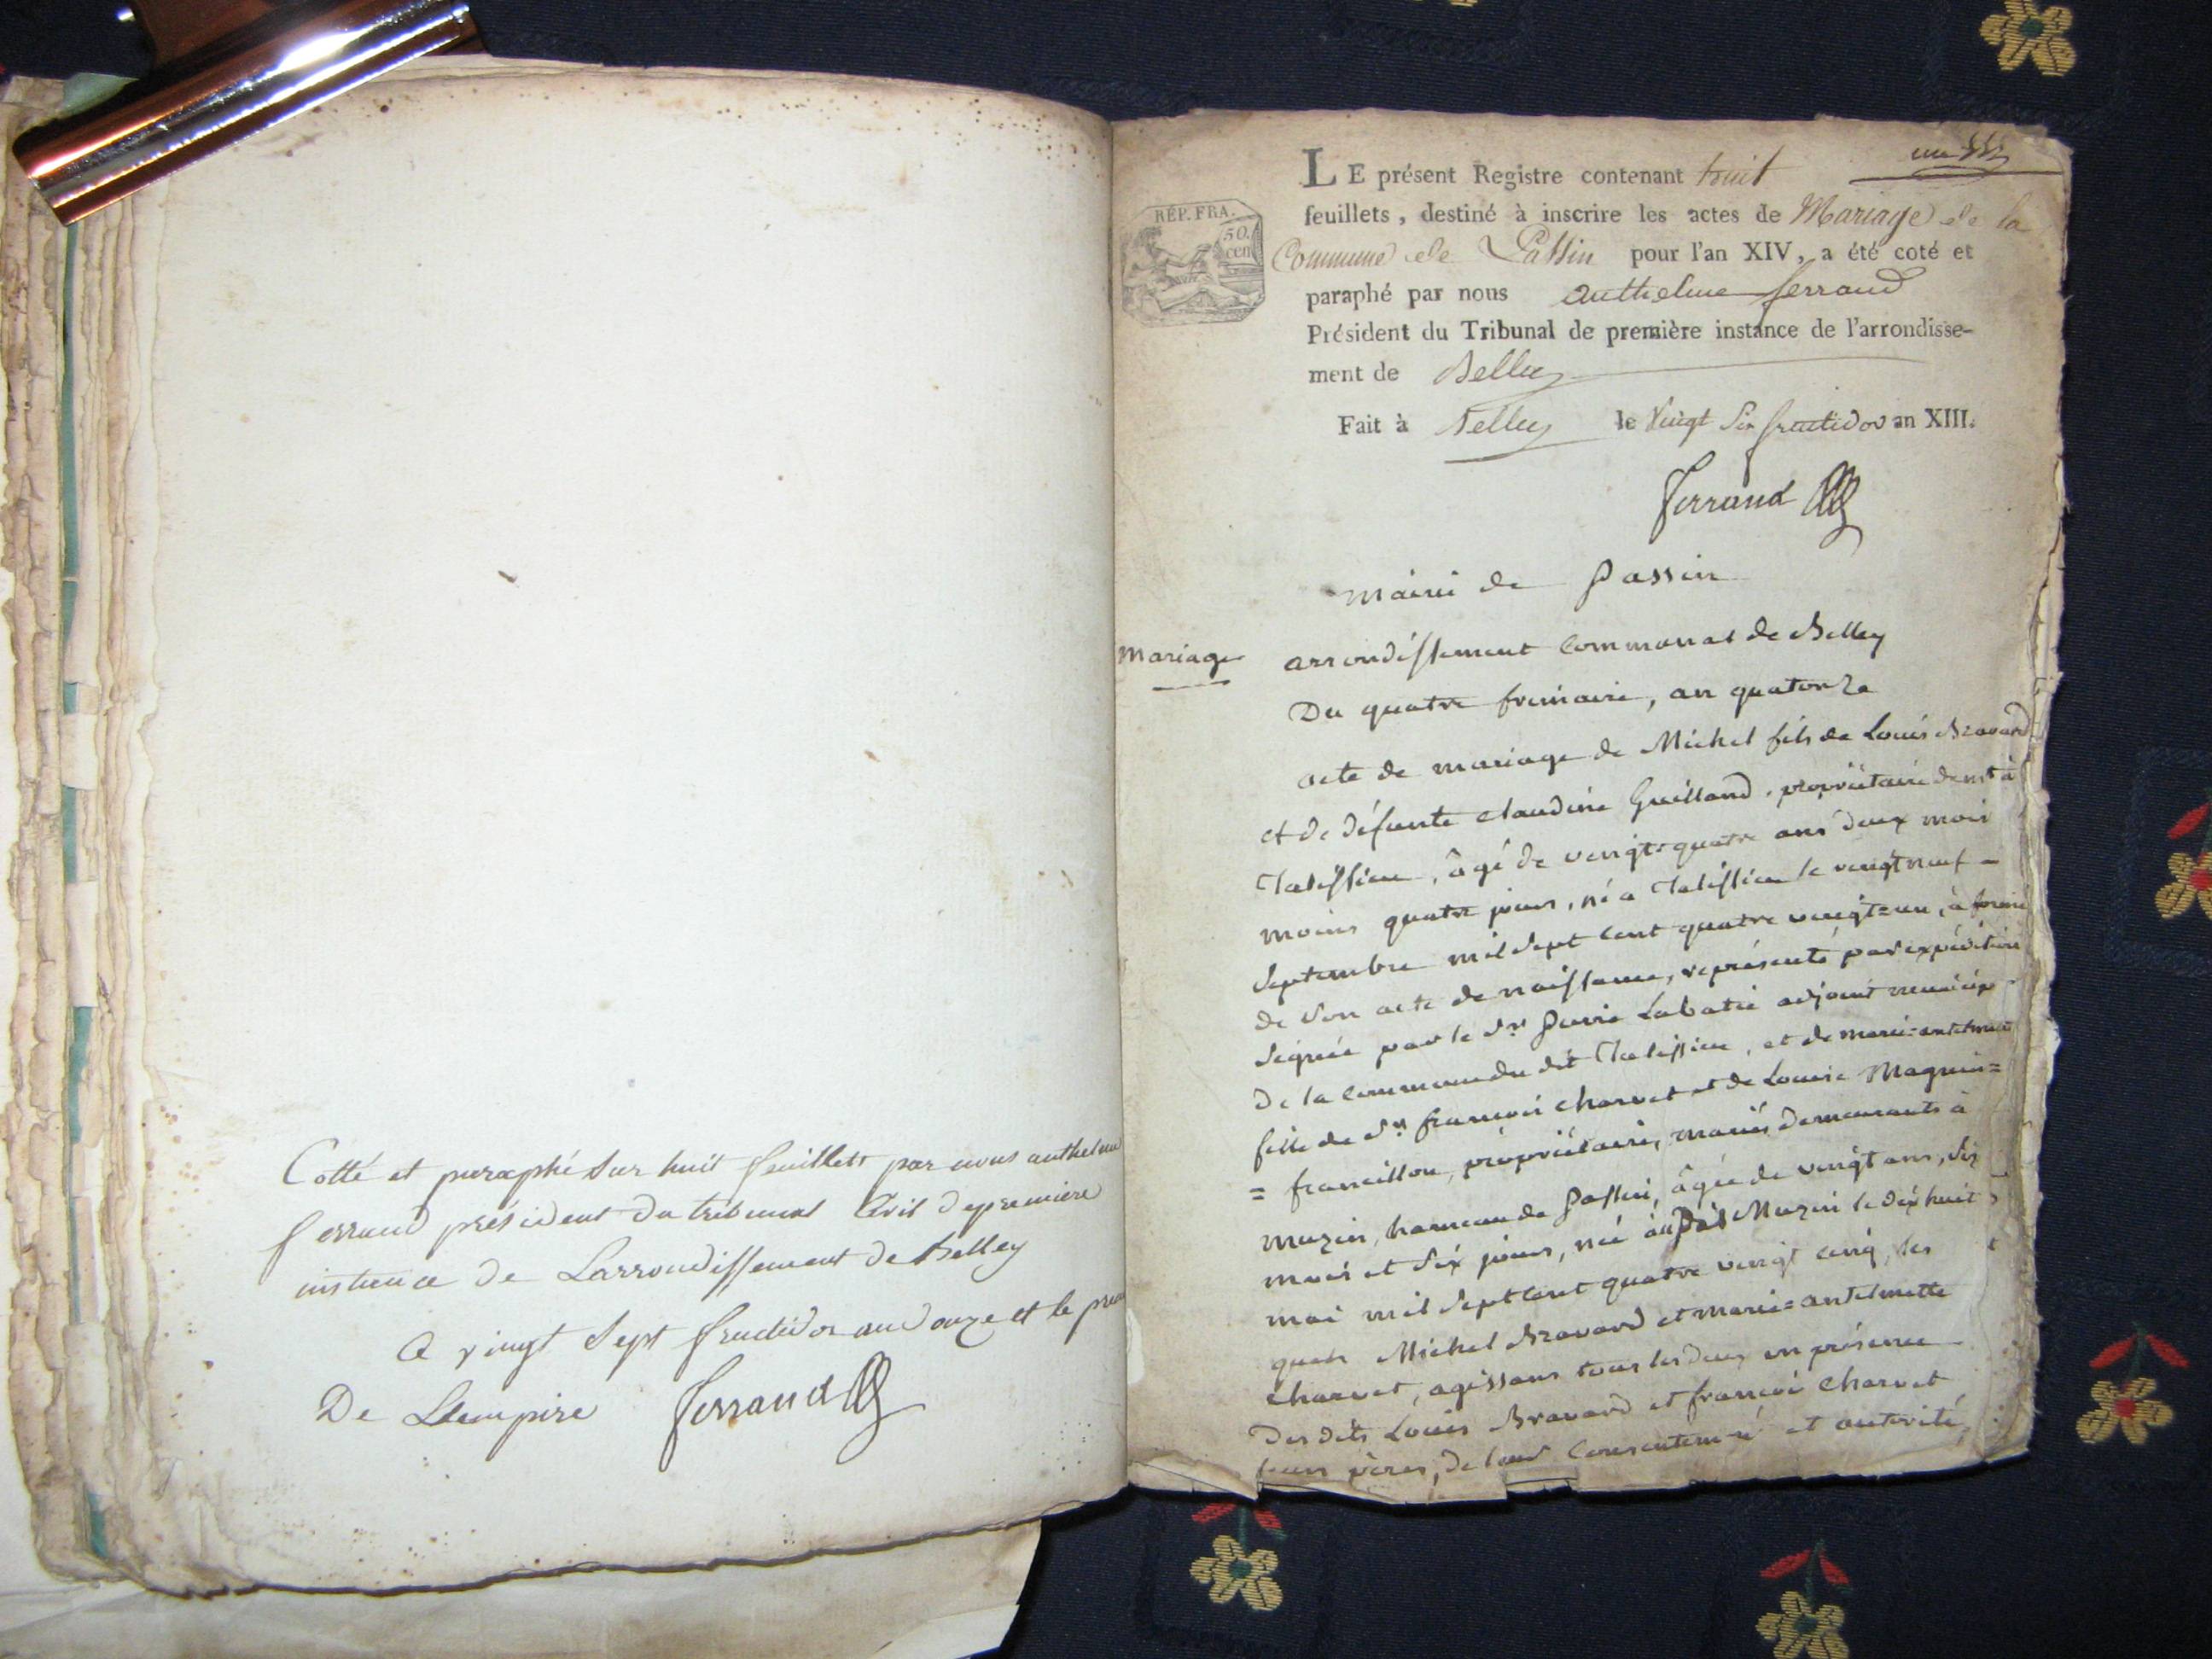 Cotté et paraphé sur huit feuillets par nous anthelme
ferrand président du tribunal Civil depremiere
instance de Larrondissement de Belley
a vingt sept fructidor an douze et le
De Lempire ferrand
un
LE présent Registre contenant huit
feuillets, destiné à inscrire les actes de Mariage de la
Commune de Passin pour l'an XIV, a été coté et
paraphé par nous anthelme ferrand
Président du Tribunal de première instance de l'arrondisse-
ment de Belley
Fait à Belley le Vingt Six fructidor an XIII.
RÉP. FRA.
50.
cen
ferrand
Mairie de Passin
Mariage
arrondissement Communal de Belley
Du quatre frimaire, an quatorze
acte de mariage de Michel fils de Louis Bravard
et de défunte claudine Guilland, propriétaire demt à
Talissieu, âgé de vengt=quatre ans deux mois
moins quatre jours, né a Talissieu le vengt neuf
Septembre mil Sept Cent quatre vengt=un, à forme
de Son acte de naissance, représenté par expédition
Signée par le Sr Pierre Labatie adjoint municip
de la commune du dit Talissieu, et de marie=antelmette
fille de Sr françois Charvet et de Louise Magnin=
= francillon, propriétaires, mariés demeurants à
Muzin, hameau de Passin, âgée de vengt ans, Six
mois et Six jours, née au dit Muzin le dix huit
mai mil Sept Cent quatre vengt Cinq, les
quels Michel Bravard et marie=antelmette
Charvet, agissans tous les deux en présence
des dits Louis Bravard et françois Charvet
leurs pères, de leur Consentement et autorité,